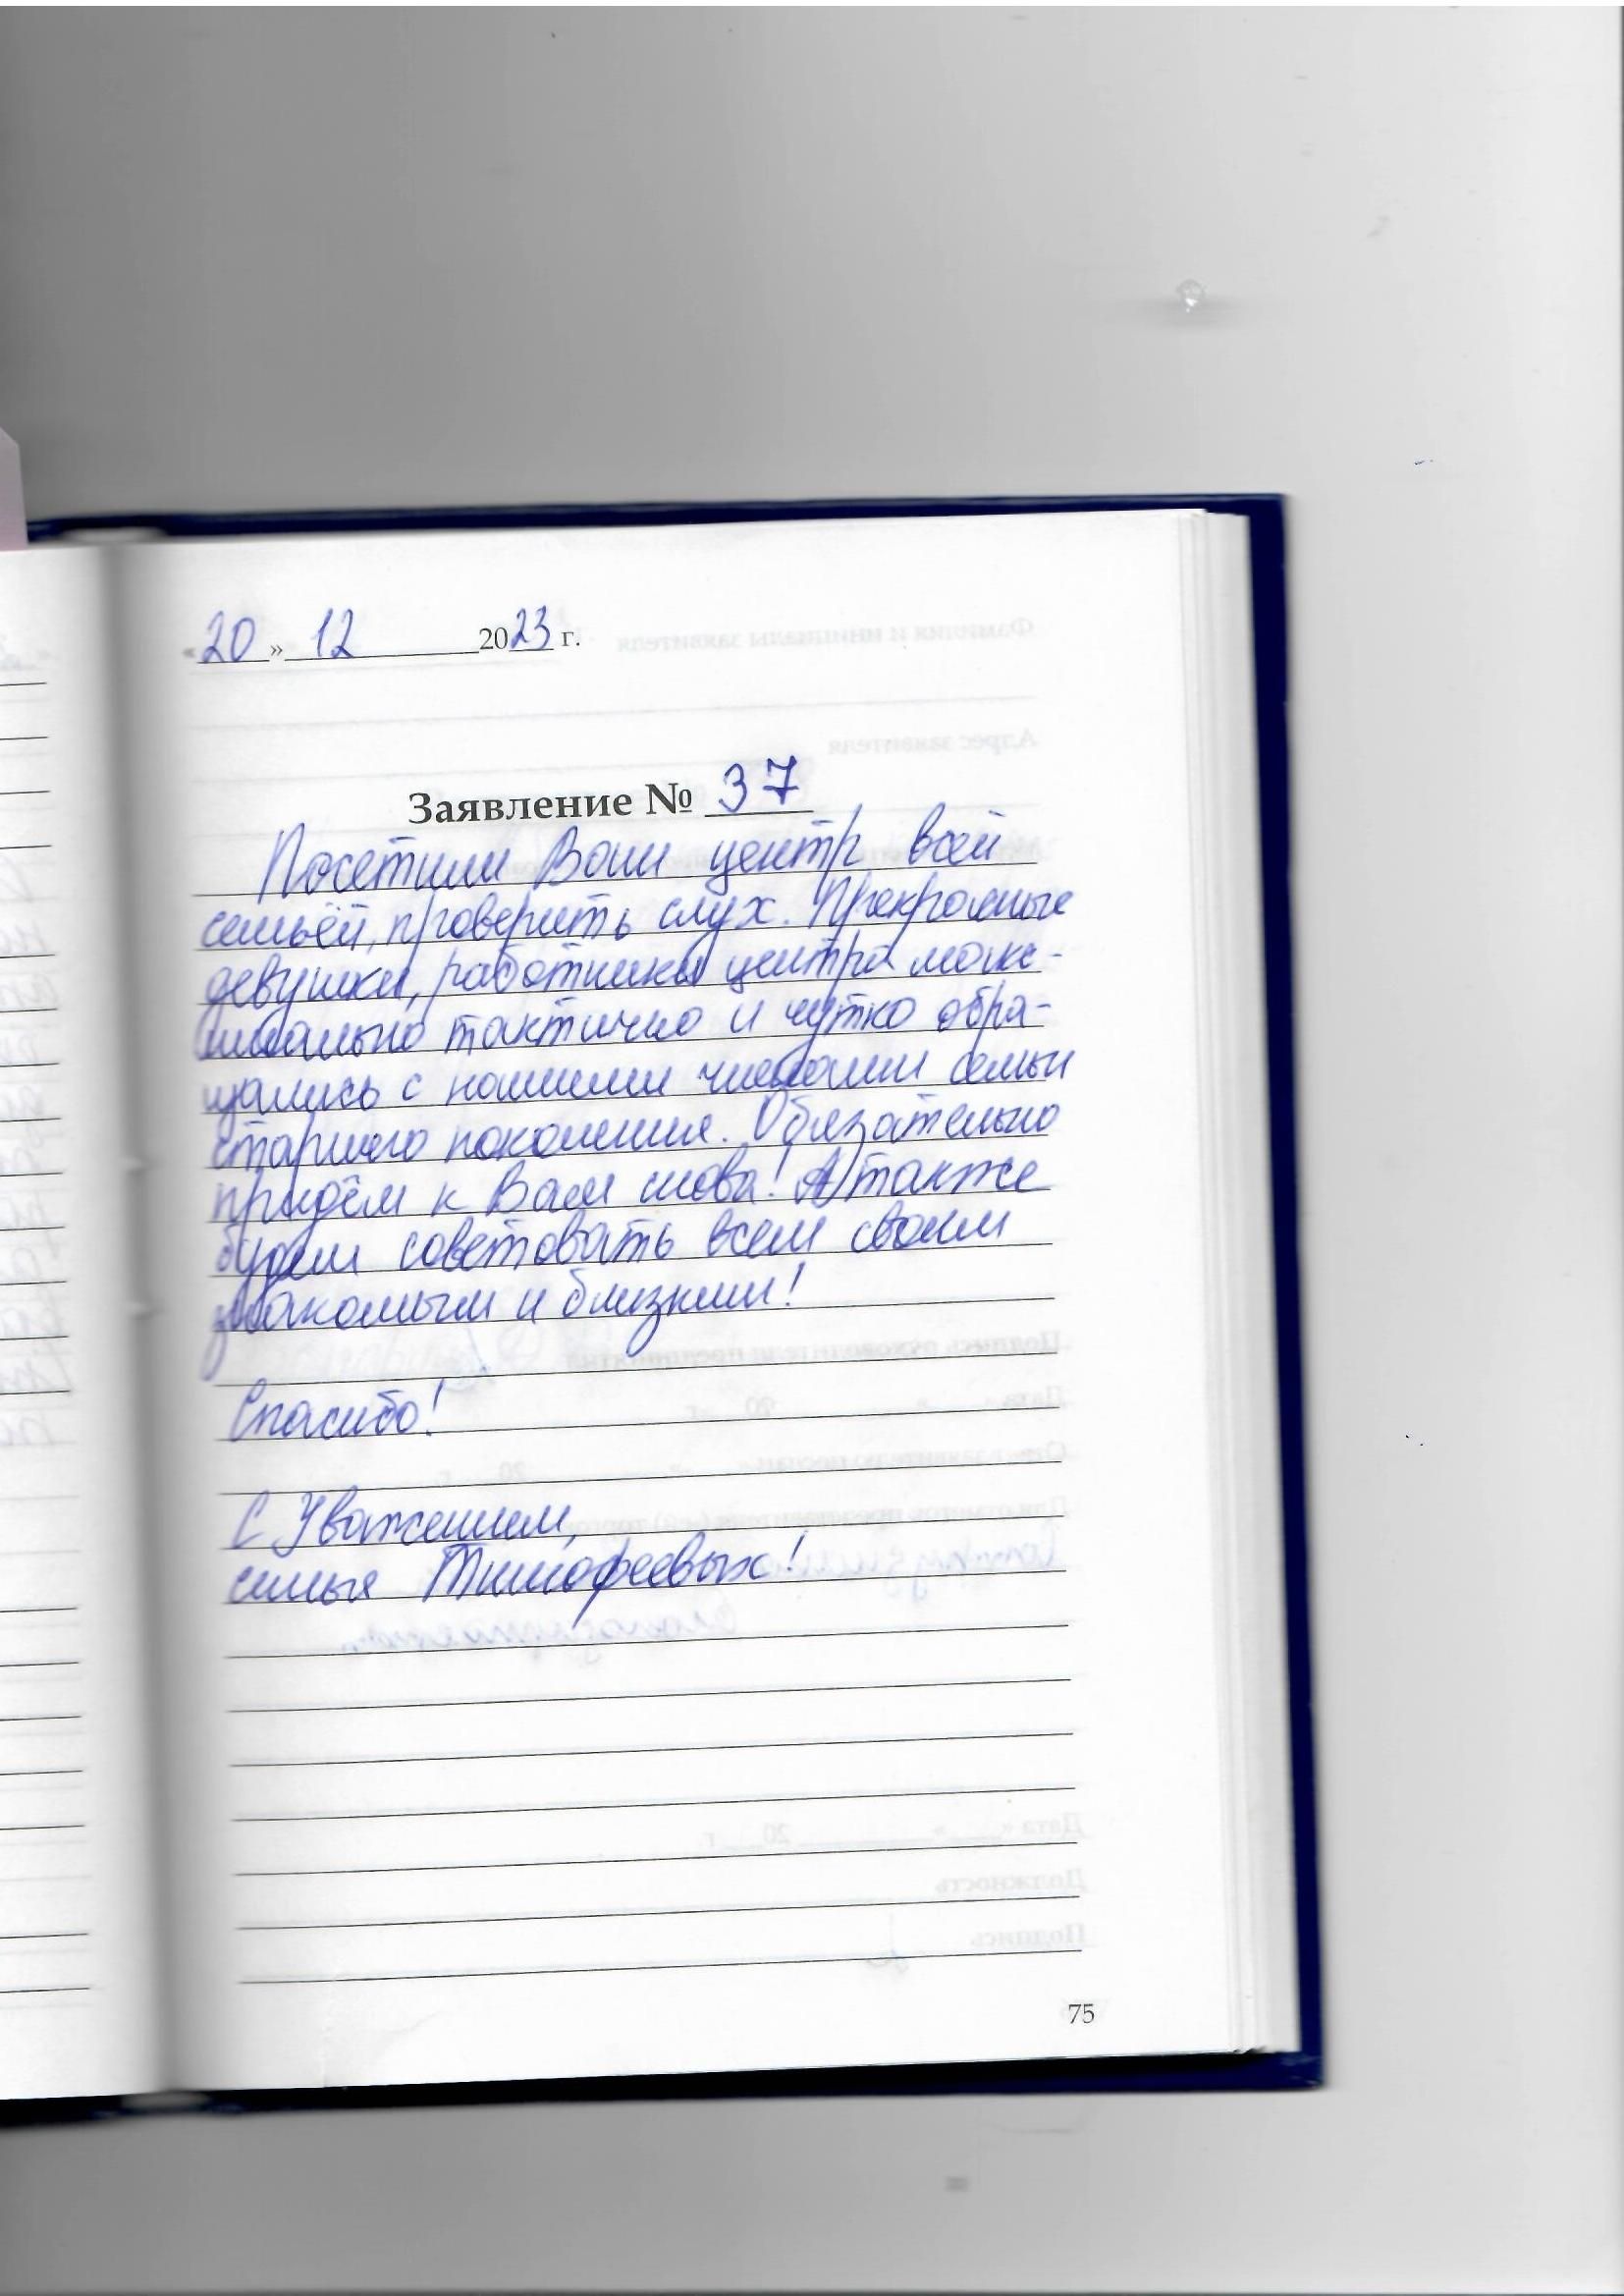 «20» 12 2023 г.
Заявление № 37
Посетили Ваш центр всей
семьёй, проверить слух. Прекрасные
девушки, работники центра макс-
имально тактично и чутко обра-
щались с нашими членами семьи
старшего поколения. Обязательно
придём к Вам снова! А также
будем советовать всем своим
знакомым и близким!
Спасибо!
С Уважением,
семья Тимофеевых!
75